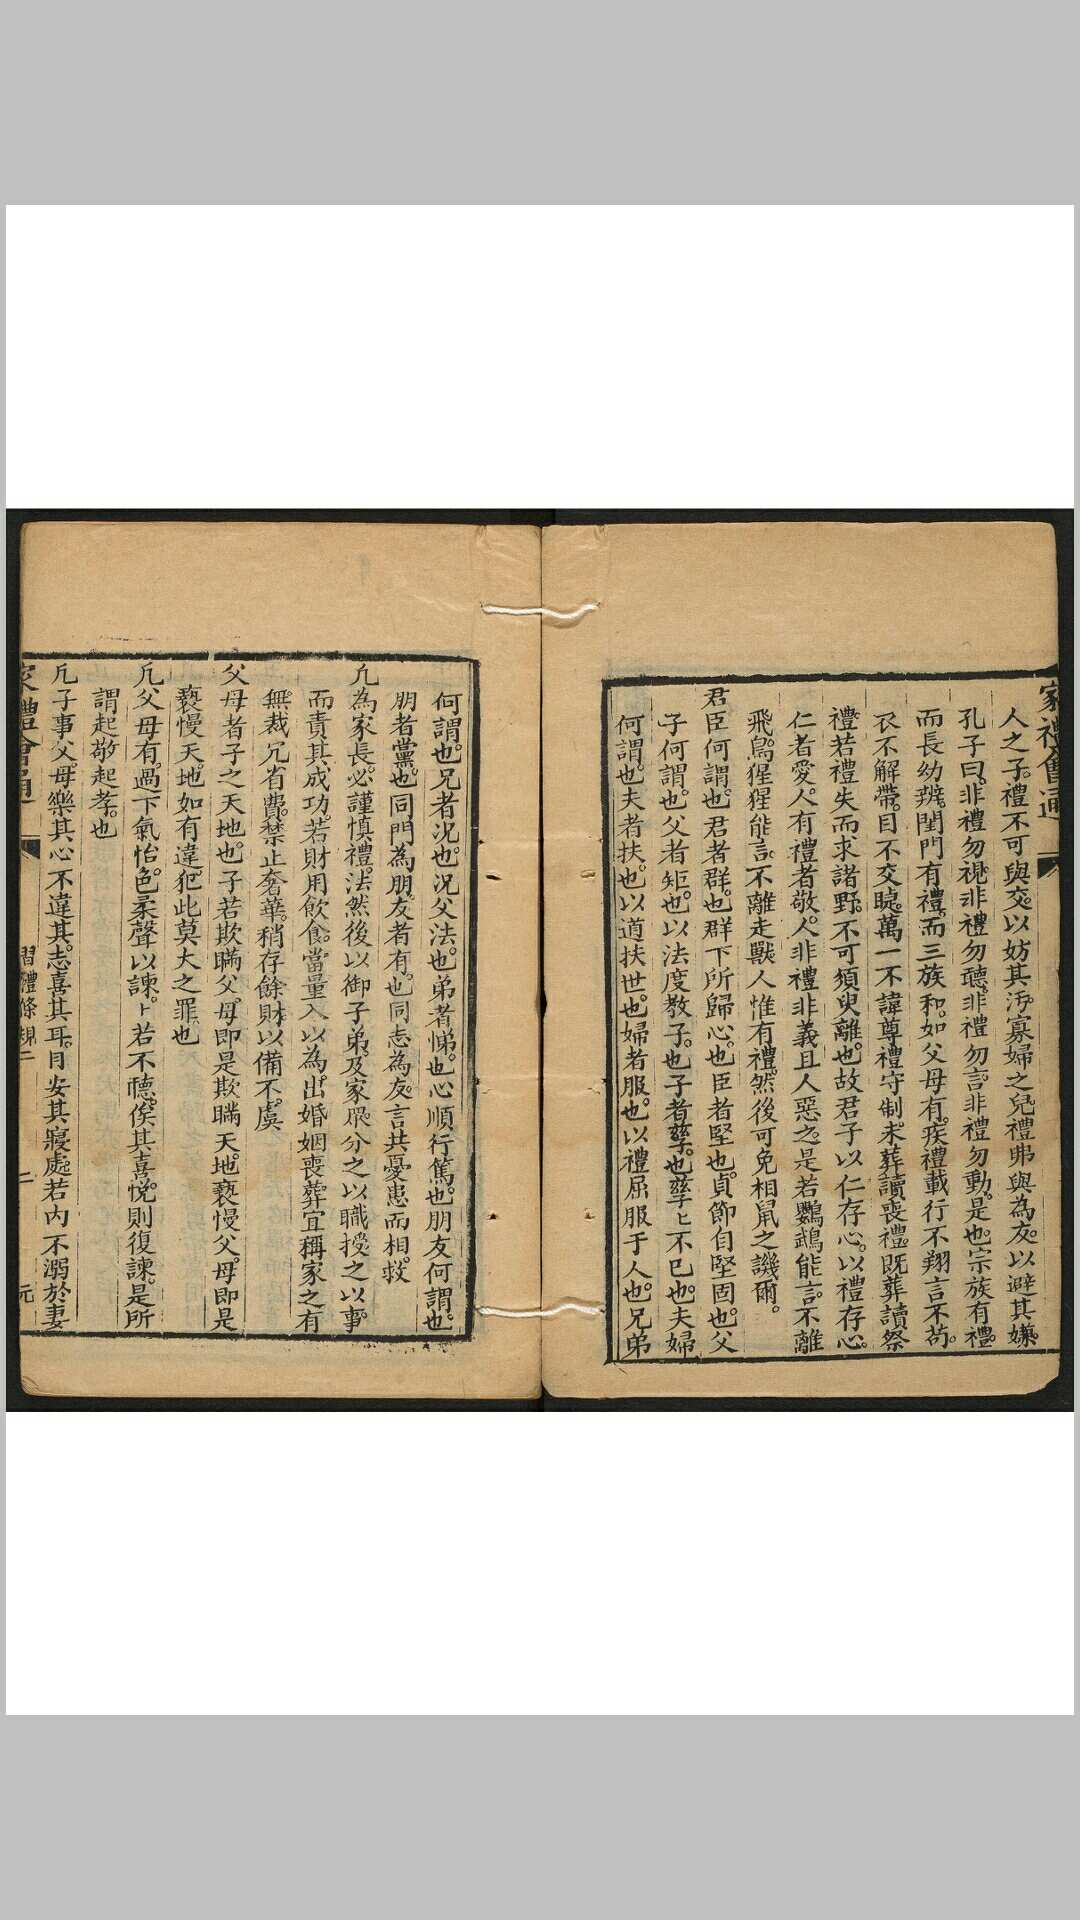 家禮會通
人之子。禮不可與交。以妨其污。寡婦之兒。禮弗與為友。以避其嫌。
孔子曰。非禮勿視。非禮勿聽。非禮勿言。非禮勿動。是也。宗族有禮。
而長幼辨。閨門有禮。而三族和。如父母有疾。禮載行不翔。言不苟。
衣不解帶。目不交睫。萬一不諱。尊禮守制。未葬讀喪禮。既葬讀祭
禮。若禮失而求諸野。不可須臾離也。故君子以仁存心。以禮存心。
仁者愛人。有禮者敬人。非禮非義。且人惡之。是若鸚鵡能言。不離
飛鳥。猩猩能言。不離走獸。人惟有禮。然後可免相鼠之譏爾。
君臣何謂也。君者群也。群下所歸心也。臣者堅也。貞節自堅固也。父
子何謂也。父者矩也。以法度教子也。子者孳也。孳〻不已也。夫婦
何謂也。夫者扶也。以道扶世也。婦者服也。以禮屈服于人也。兄弟
何謂也。兄者況也。況父法也。弟者悌也。心順行篤也。朋友何謂也。
朋者黨也。同門為朋。友者有也。同志為友。言共憂患而相救。
凢為家長。必謹慎禮法。然後以御子弟。及家眾。分之以職。授之以事。
而責其成功。若財用飲食。當量入以為出。婚姻喪葬。宜稱家之有
無。裁冗省費。禁止奢華。稍存餘財。以備不虞。
父母者。子之天地也。子若欺瞞父母。即是欺瞞天地。褻慢父母。即是
褻慢天地。如有違犯。此莫大之罪也
凢父母有過。下氣怡色。柔聲以諫。〻若不聽。俟其喜悅。則復諫。是所
謂起敬起孝也
凢子事父母。樂其心。不違其志。喜其耳目。安其寢處。若內不溺於妻
家禮會通 習禮條規二 二 元